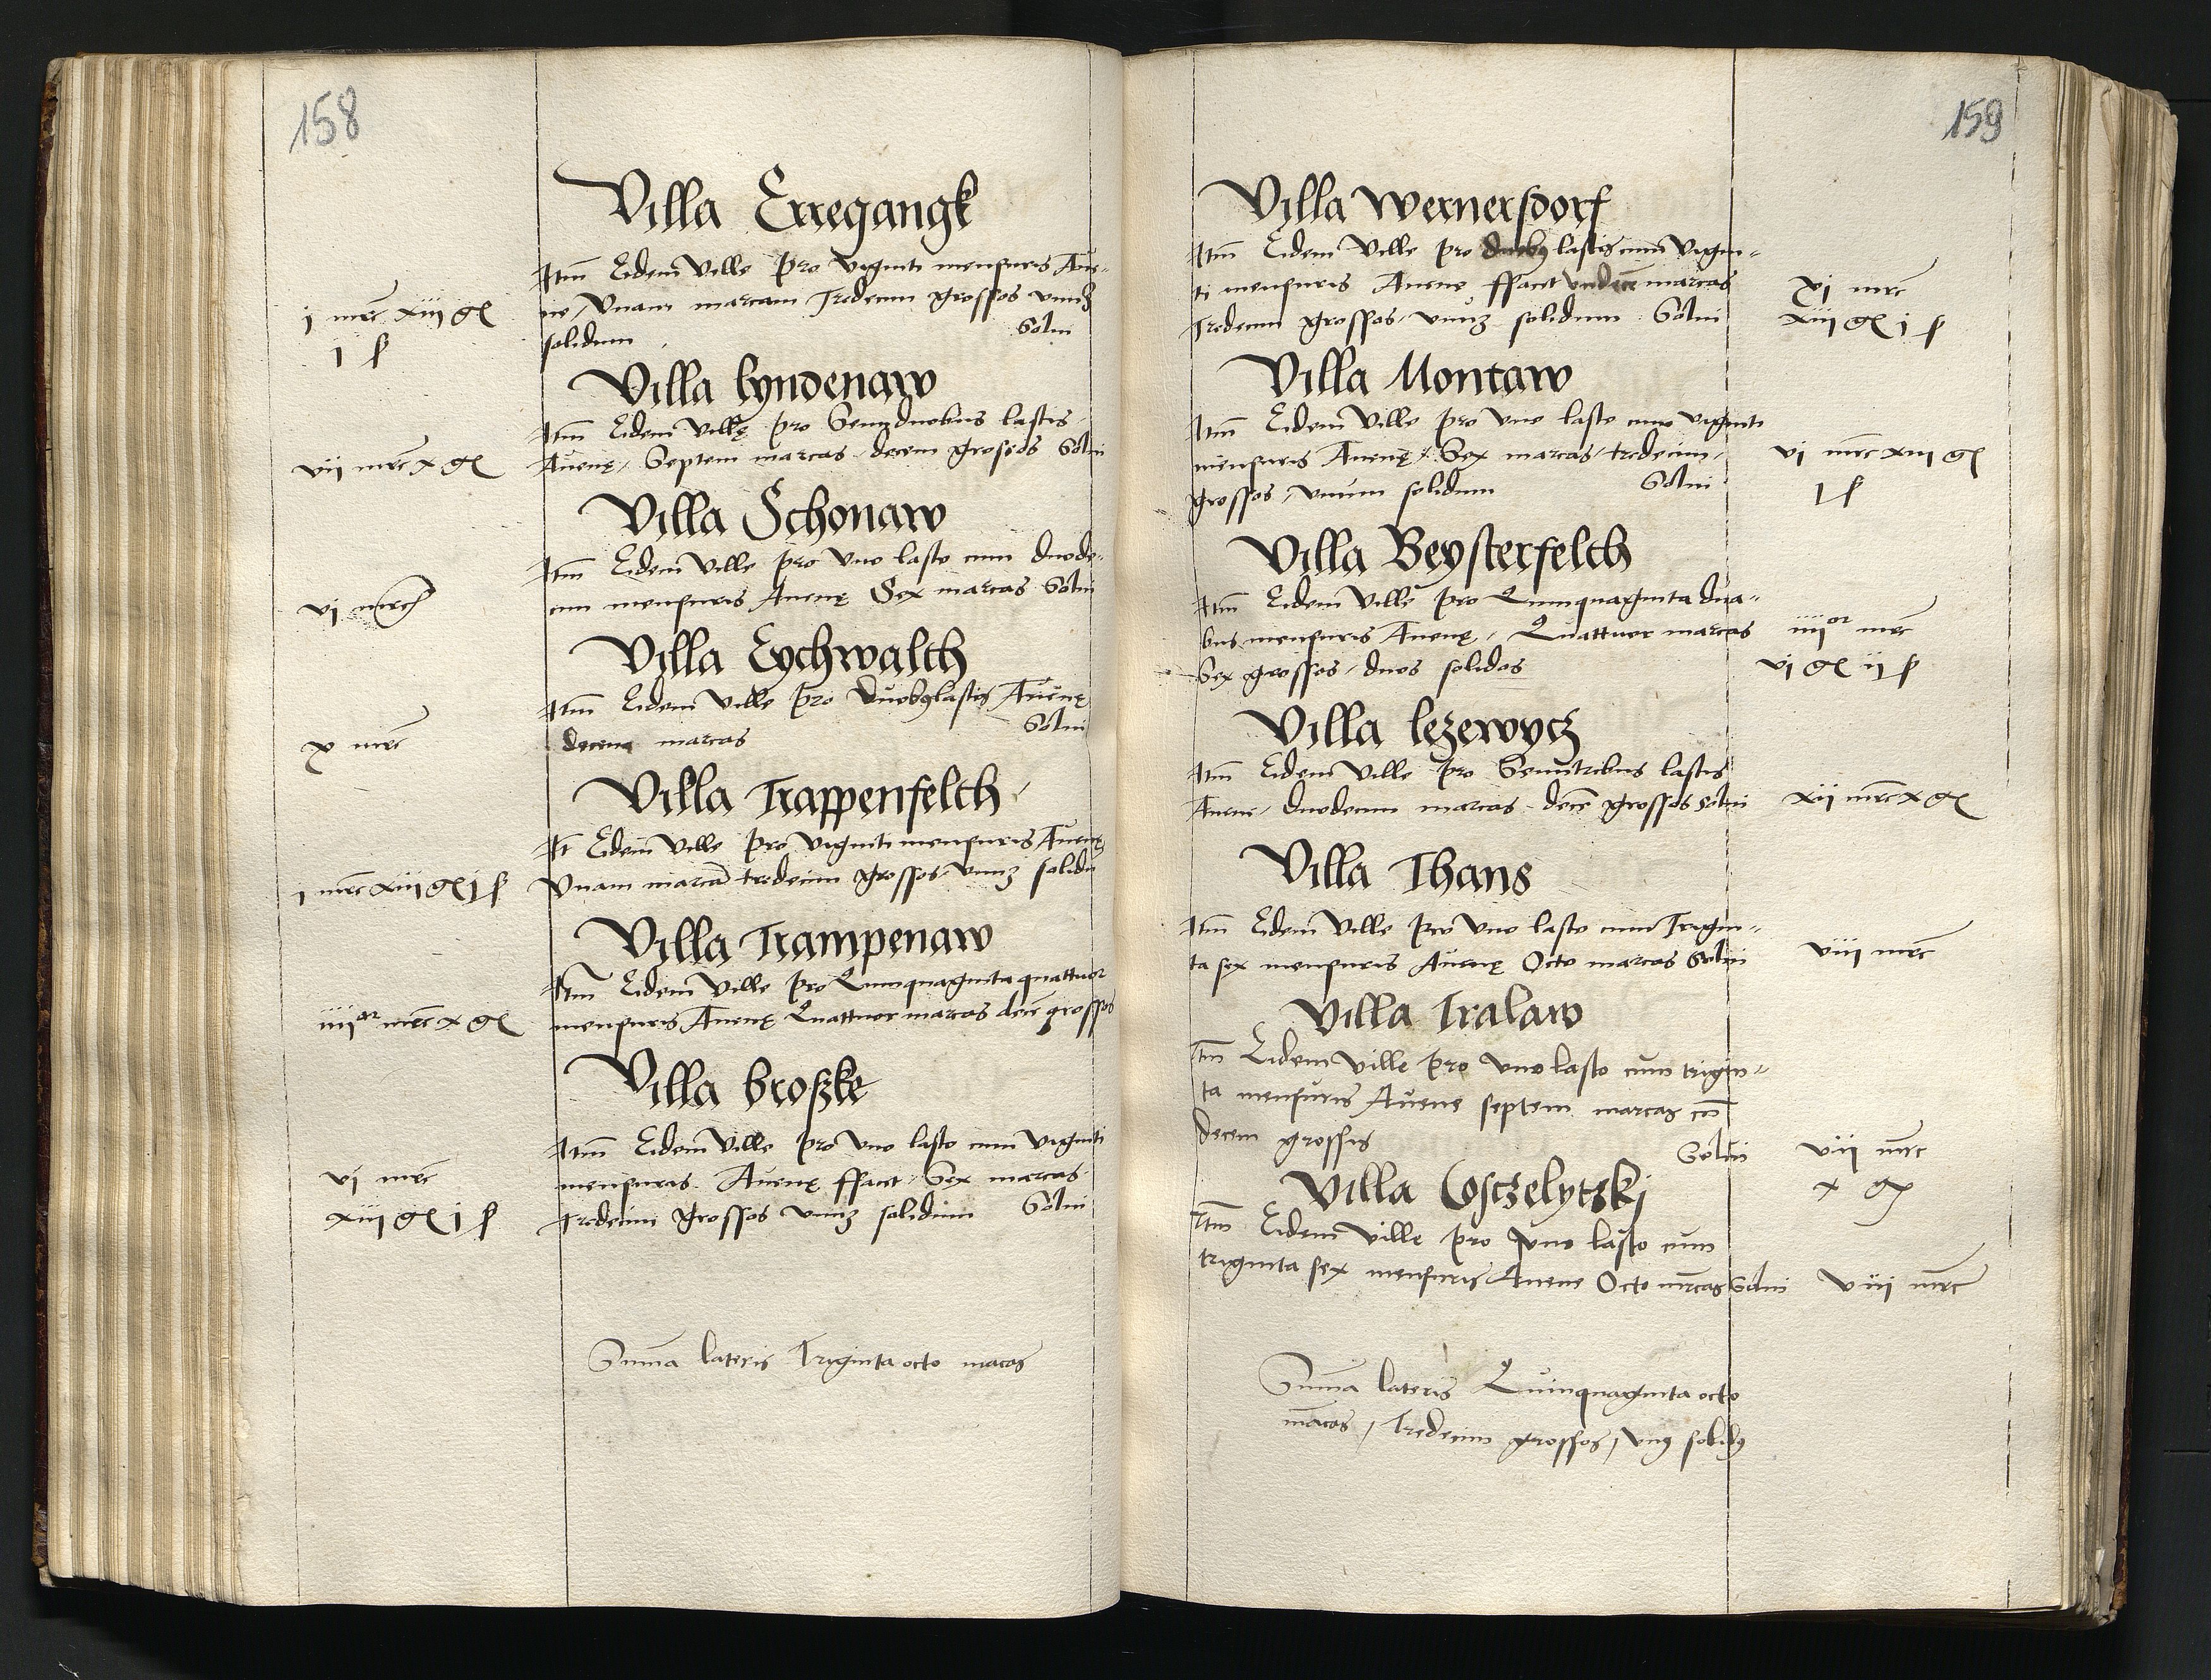 158
Villa Erregangk
Itm Eidem Ville pro viginti mensuris Aue-
ne / Vnam marcam Tredecim grossos vnuʒ
solidum Solui
j mrc xiij gr
j ſ
Villa lyndenaw
Itm Eidem Villę pro Semiduobus lastis
Auenę / Septem marcas decem grossos Solui
vij mrc x gr
Villa Schonaw
Itm Eidem Ville pro Vno lasto cum duode-
cim mensuris Auenę Sex marcas Solui
vj mrc
Villa Eychwalth
Itm Eidem Ville pro duobꝰ lastis Auenę
decem marcas Solui
x mrc
Villa Trappenfelth
It Eidem Ville pro viginti mensuris Auenę
Vnam marcā tredecim grossos vnuʒ solidū
j mrc xiij gr j ſ
Villa Trampenaw
Itm Eidem Ville pro Quinquaginta quattuor
mensuris Auenę Quattuor marcas decē grossos
iiij or mrc x gr
Villa broszke
Itm Eidem Ville pro Vno lasto cum viginti
mensuris Auenę ffacit Sex marcas
Tredecim grossos vnuʒ solidum Solui
vj mrc
xiij gr j ſ
Summa lateris Triginta octo marcas
159
Villa Wernersdorf
Itm Eidem Ville pro duobꝰ lastis cum vigin-
ti mensuris Auenę ffacit vndecē marcas
Tredecim grossos vnuʒ solidum Solui
xj mrc
xiij gr j ſ
Villa Montaw
Itm Eidem Ville pro vno lasto cum viginti
mensuris Auenę / Sex marcas / tredecim
grossos / vnum solidum Solui
vj mrc xiij gr
j ſ
Villa Beysterfelth
Itm Eidem Ville pro Quinquaginta dua-
bus mensuris Auenę / Quattuor marcas
Sex grossos / duos solidos
iiij or mrc
vj gr ij ſ
Villa leʒewycʒ
Itm Eidem Ville pro Semitribus lastis
Auene / duodecim marcas decē grossos Solui
xij mrc x gr
Villa Thans
Itm Eidem Ville pro Vno lasto cum Trigin-
ta sex mensuris Auenę Octo marcas Solui
viij mrc
Villa Tralaw
Itm Eidem Ville pro vno lasto cum trigin-
ta mensuris Auene septem marcas cū
decem grossis Solui
vij mrc
x gr
Villa Cosczelytzkj
Itm Eidem Ville pro vno lasto cum
triginta sex mensuris Auene Octo mrcas Solui
viij mrc
Summa lateris Quinquaginta octo
marcas / Tredecim grossos / vnꝰ solidꝰ